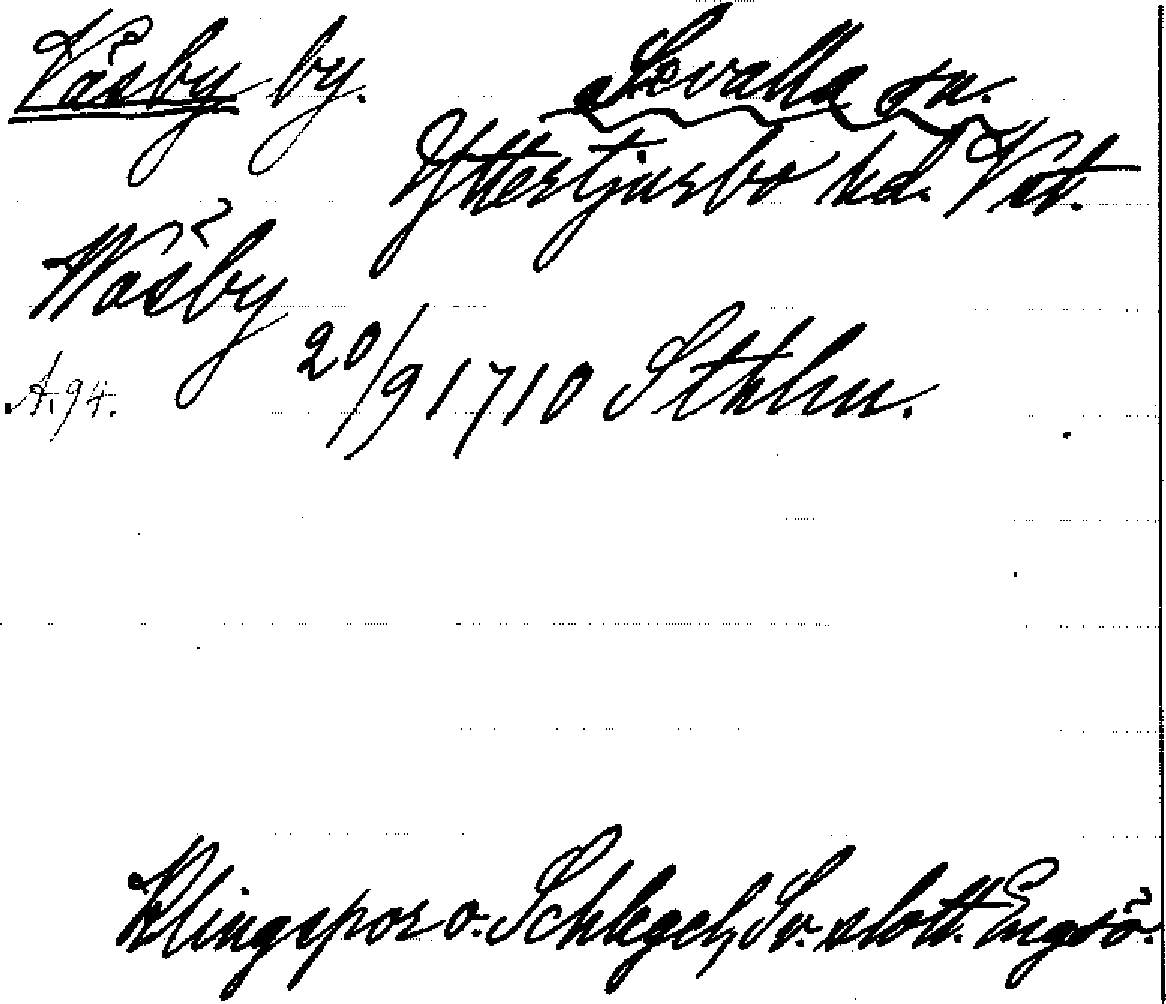 Väsby by. Sevalla sn.
Yttertjurbo hd. Vst.
Wäsby
A.94. 20/9 1710 Sthlm.
Klingspor o. Schlegel, Sv. slott. Engsö.